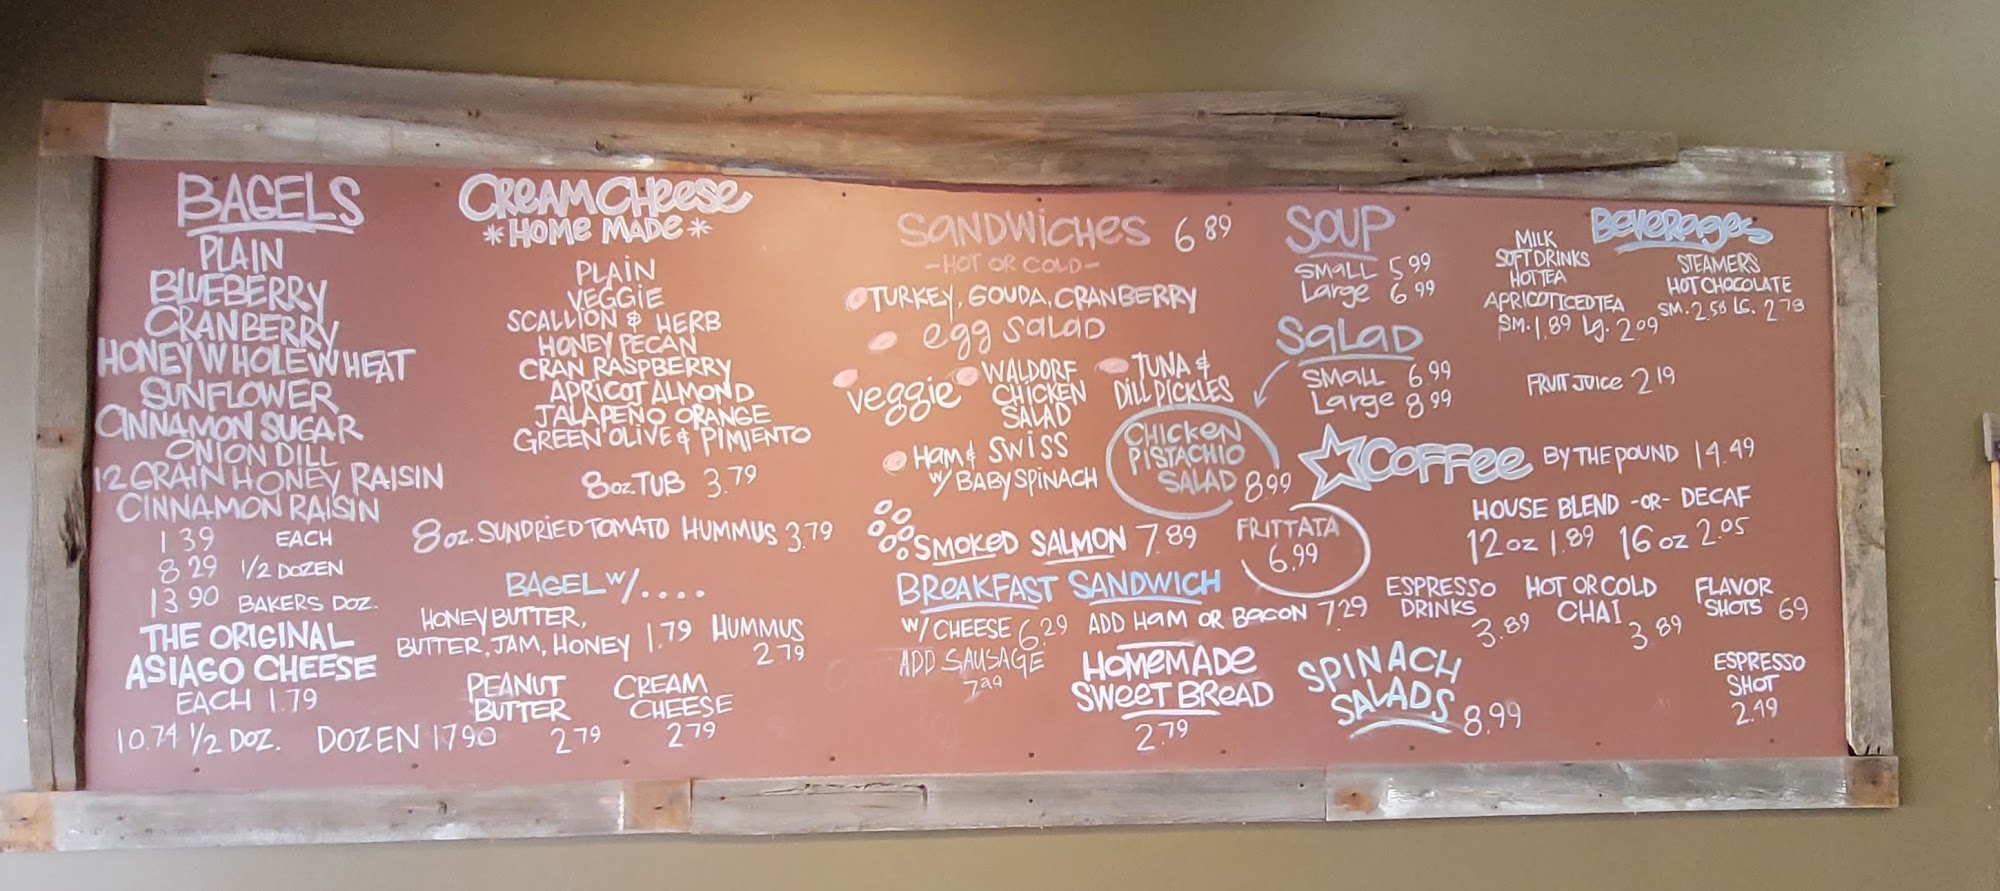 BAGELS
PLAIN
BLUEBERRY
CRANBERRY
HONEY WHOLEWHEAT
SUNFLOWER
CINNAMON SUGAR
ONION DILL
12 GRAIN HONEY RAISIN
CINNAMON RAISIN
1 39 EACH
8 29 1/2 DOZEN
13 90 BAKERS DOZ.
THE ORIGINAL
ASIAGO CHEESE
EACH 1.79
10.74 1/2 DOZ. DOZEN 17 90
CREAM CHEESE
*HOME MADE*
PLAIN
VEGGIE
SCALLION & HERB
HONEY PECAN
CRAN RASPBERRY
APRICOT ALMOND
JALAPEÑO ORANGE
GREEN OLIVE & PIMIENTO
8oz. TUB 3.79
8oz. SUNDRIED TOMATO HUMMUS 3.79
BAGEL W/....
HONEY BUTTER,
BUTTER, JAM, HONEY 1.79
HUMMUS
2 79
PEANUT
BUTTER
2 79
CREAM
CHEESE
2 79
SANDWICHES 6 89
-HOT OR COLD-
TURKEY, GOUDA, CRANBERRY
egg SALAD
veggie
WALDORF
CHICKEN
SALAD
TUNA &
DILL PICKLES
HAM & SWISS
W/ BABY SPINACH
CHICKEN
PISTACHIO
SALAD 8.99
SMOKED SALMON 7.89
FRITTATA
6.99
BREAKFAST SANDWICH
W/ CHEESE 6.29 ADD HAM OR BACON 7.29
ADD SAUSAGE
HOMEMADE
SWEET BREAD
2.79
SOUP
SMALL 5 99
Large 6 99
SALAD
SMALL 6.99
Large 8 99
Beverages
MILK
SOFT DRINKS
HOT TEA
APRICOT ICED TEA
SM. 1.89 Lg. 2.09
STEAMERS
HOT CHOCOLATE
SM. 2.58 LG. 2.78
FRUIT JUICE 2 19
COFFEE BY THE POUND 14.49
HOUSE BLEND -OR- DECAF
12 oz 1.89 16 oz 2.05
ESPRESSO
DRINKS
3.89
HOT OR COLD
CHAI
3.89
FLAVOR
SHOTS 69
SPINACH
SALADS 8.99
ESPRESSO
SHOT
2.49